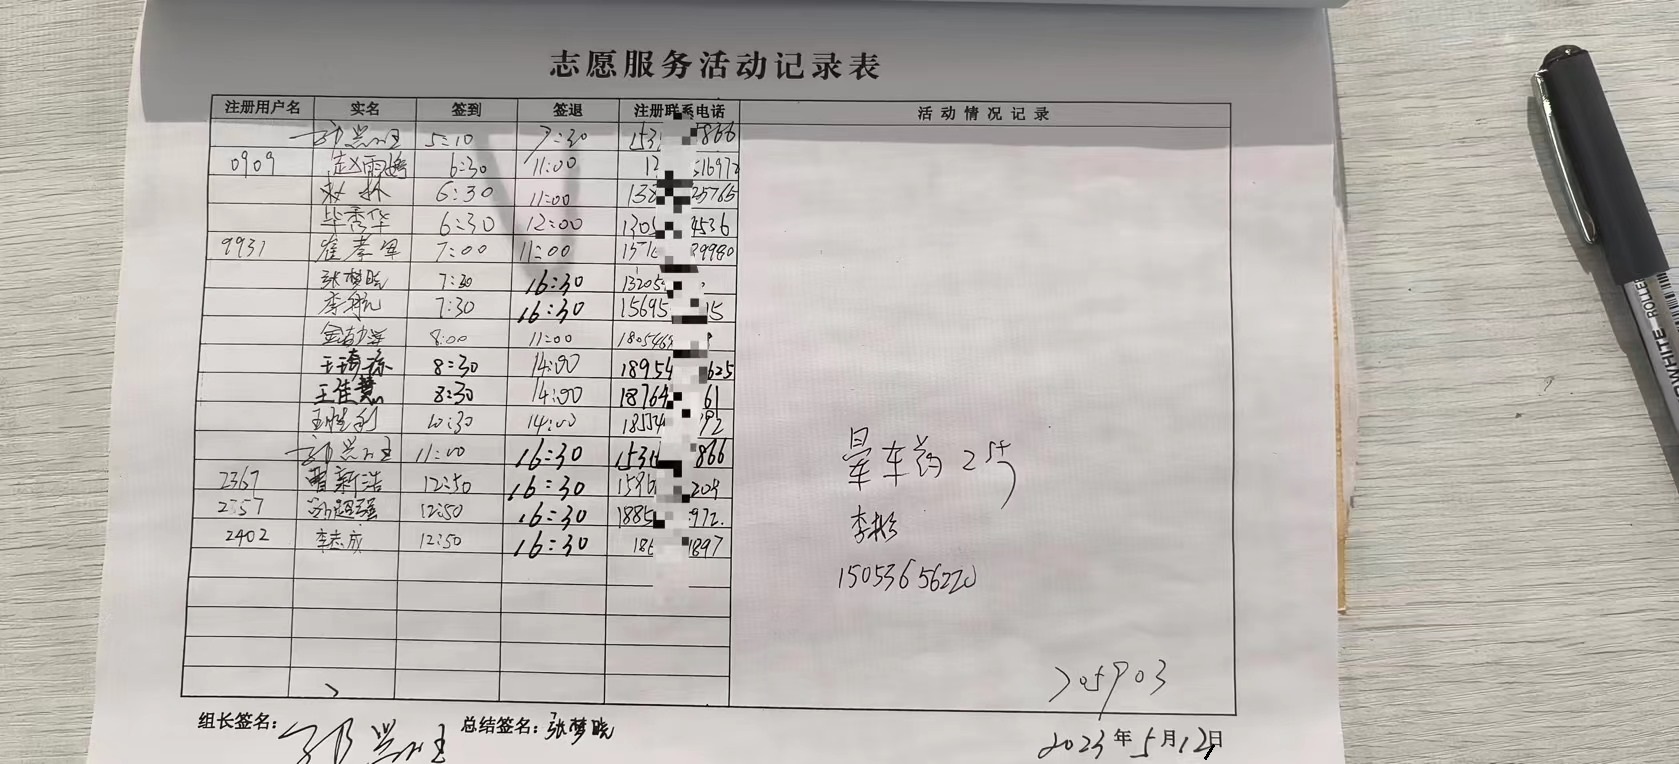 志愿服务活动记录表
注册用户名 实名 签到 签退 注册联系电话 活动情况记录
5:10 7:30 1531 866
0909 赵雨 6:30 11:00 12 51697
林 6:30 11:00 132 25765
毕秀华 6:30 12:00 1305 4536
9931 崔孝军 7:00 11:00 1571 89980
张梦晓 7:30 16:30 13205
李 7:30 16:30 15695 15
金 8:00 11:00 1805469
王琦 8:30 14:00 18954 625
王佳慧 8:30 14:00 18764 61
王胜利 10:30 14:00 18554 92
11:00 16:30 1531 866
2367 曹新浩 12:50 16:30 1596 204
2357 超强 12:50 16:30 1885 972
2402 李志成 12:50 16:30 186 1897
晕车药2片
李彬
15053656220
组长签名: 总结签名:张梦晓
2023年5月12日